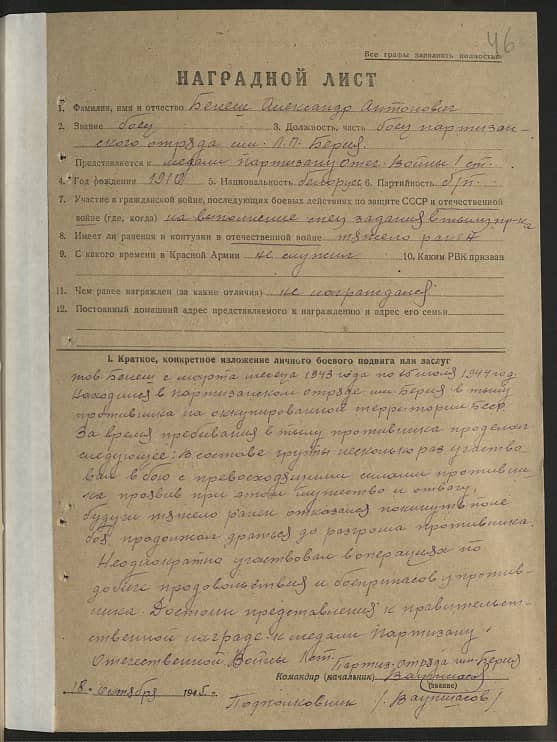 46
Все графы заполнять полностью
НАГРАДНОЙ ЛИСТ
1. Фамилия, имя и отчество Бенеш Александр Антонович
2. Звание боец 3. Должность, часть боец партизан-
ского отряда им. Л.П. Берия.
Представляется к медали Партизану Отеч. Войны I ст.
4. Год рождения 1910 5. Национальность белорус 6. Партийность б/п.
7. Участие в гражданской войне, последующих боевых действиях по защите СССР и отечественной
войне (где, когда) на выполнение спец задания в тылу пр-ка
8. Имеет ли ранения и контузии в отечественной войне тяжело ранен
9. С какого времени в Красной Армии не служил 10. Каким РВК призван
11. Чем ранее награжден (за какие отличия) не награждался
12. Постоянный домашний адрес представляемого к награждению и адрес его семьи
I. Краткое, конкретное изложение личного боевого подвига или заслуг
тов. Бенеш с марта месяца 1943 года по 15 июля 1944 год.
находился в партизанском отряде им. Берия в тылу
противника на оккупированной территории БССР.
За время пребывания в тылу противника проделал
следующее: В составе группы несколько раз участво-
вал в бою с превосходящими силами противни-
ка проявив при этом мужество и отвагу,
будучи тяжело ранен отказался покинуть поле
боя продолжал драться до разгрома противника.
Неоднократно участвовал в операциях по
добыче продовольствия и боеприпасов у против-
ника. Достоин представления к правительст-
ственной награде к медали Партизану
Отечественной Войны I ст.
Партиз. отряда им. Берия
Командир (начальник) Ваупшасов
(звание)
18 октября 1945 г.
Подполковник /Ваупшасов/